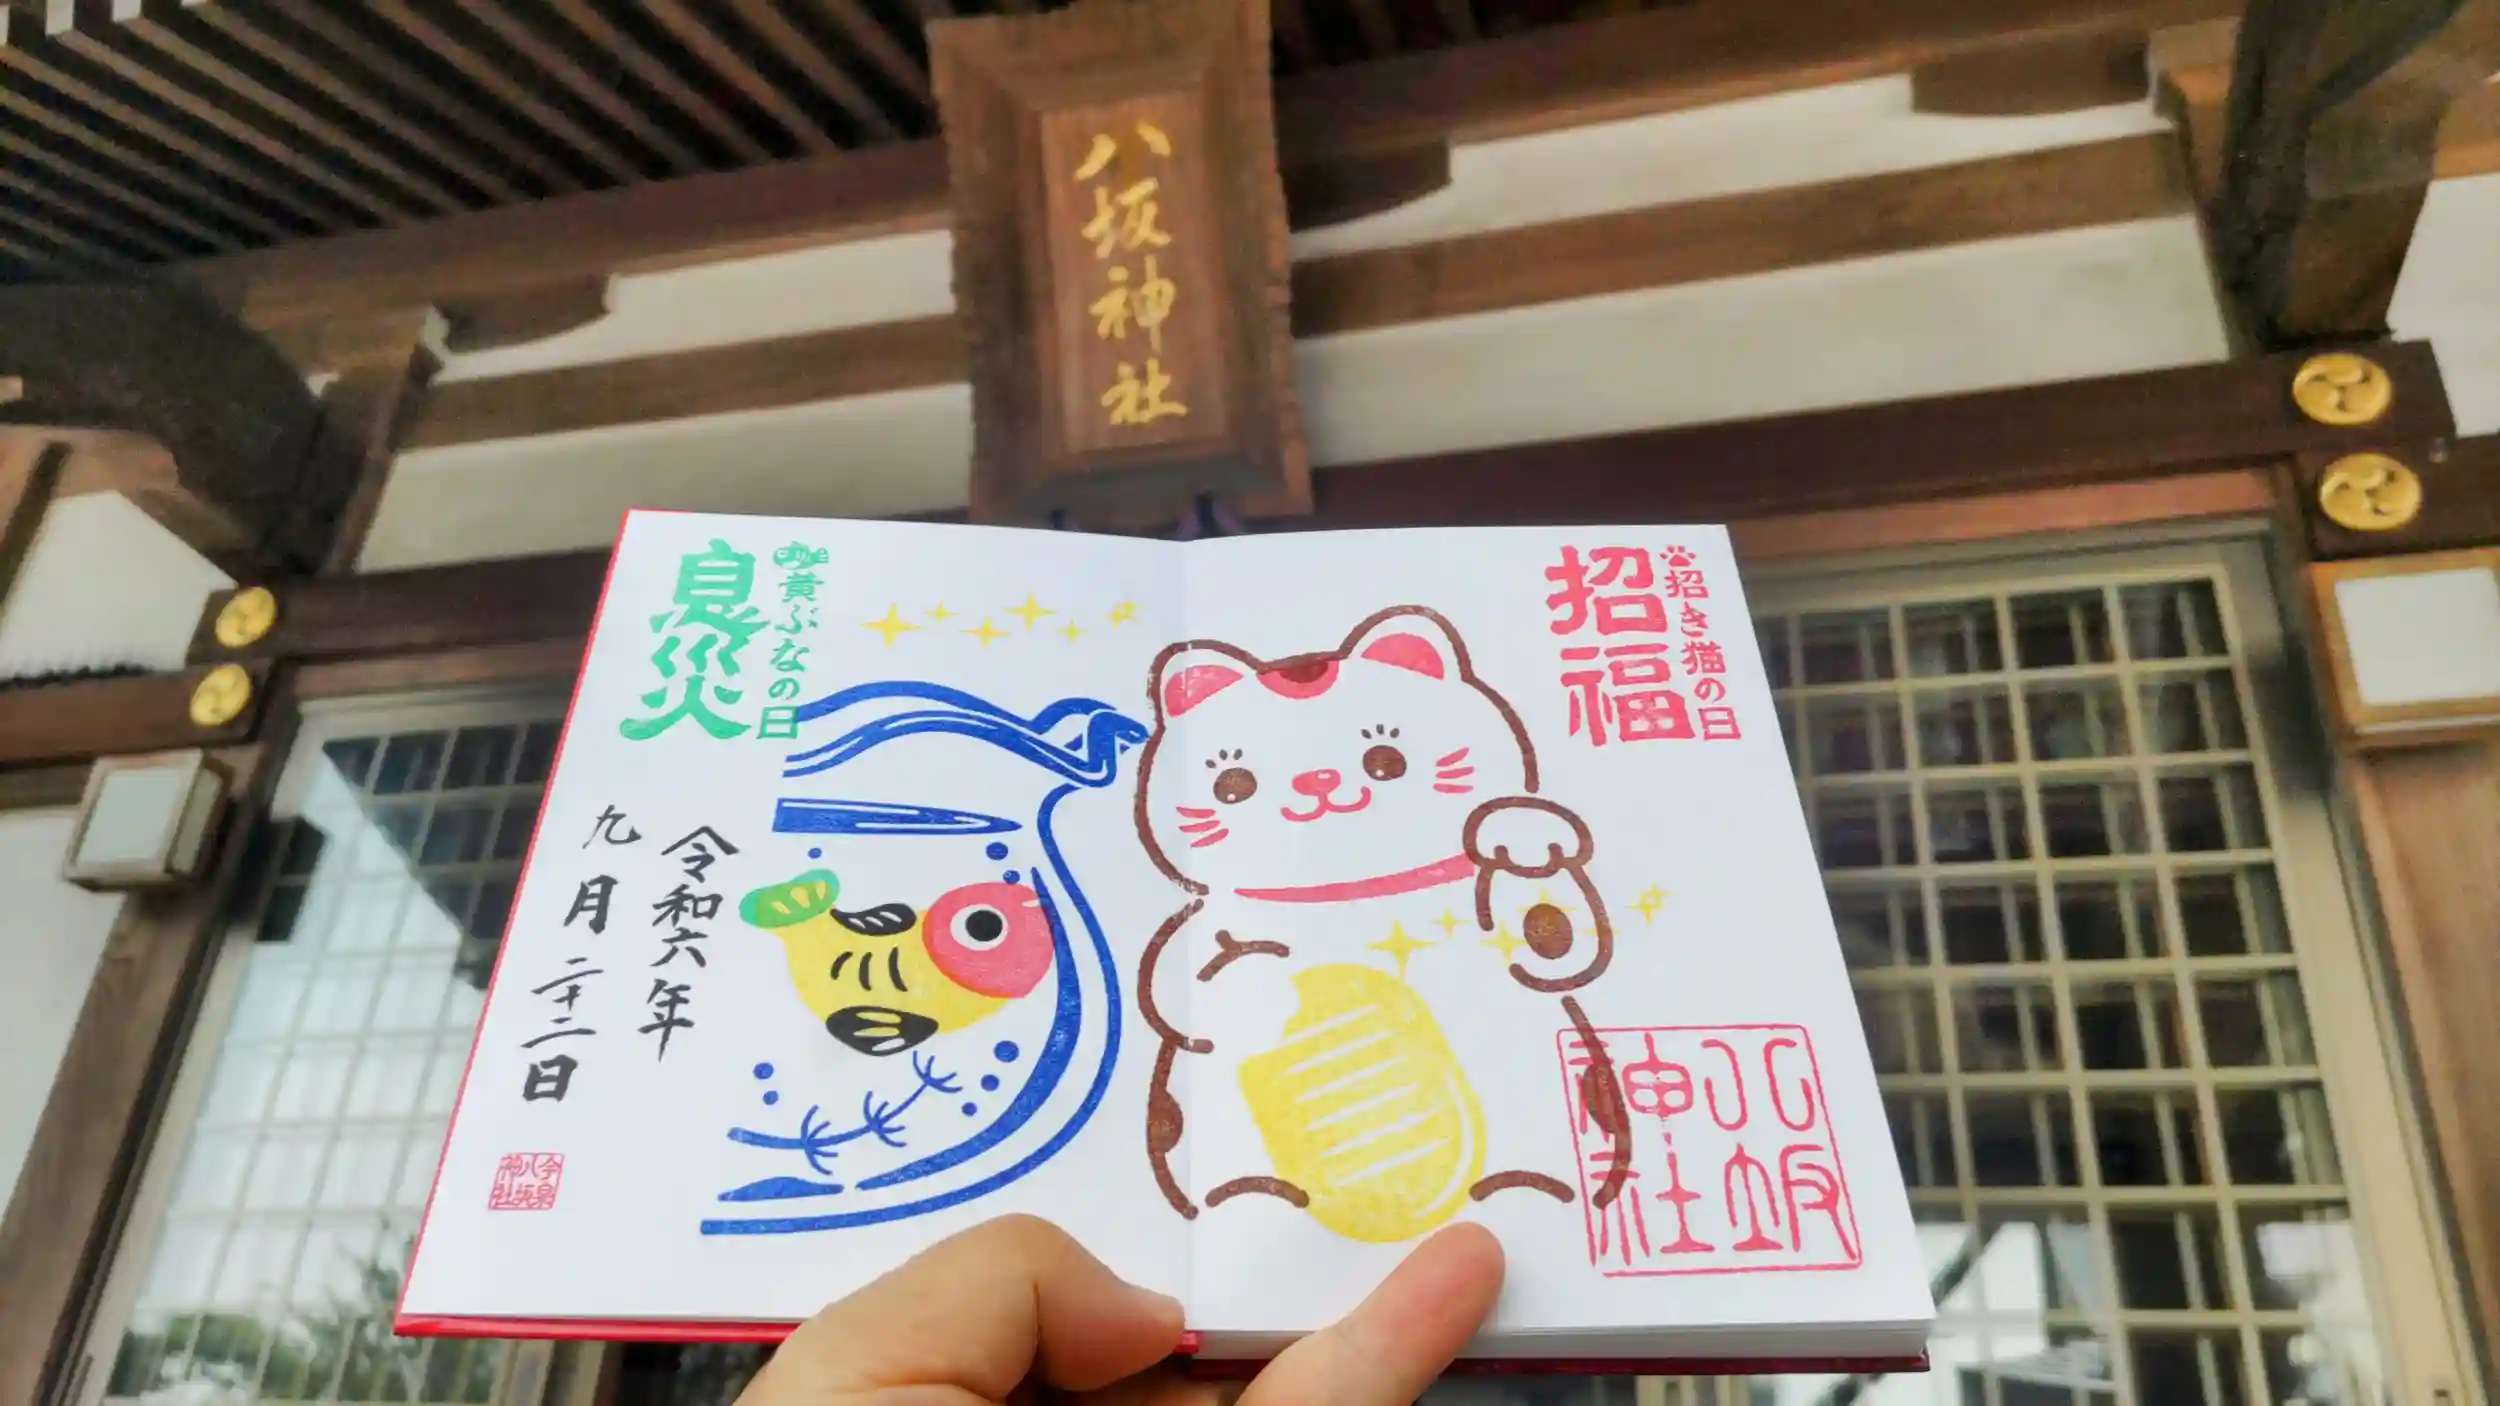 八坂神社
招き猫の日
招福
八坂
神社
黄ぶなの日
息災
令和六年
九月二十二日
今泉
八坂
神社